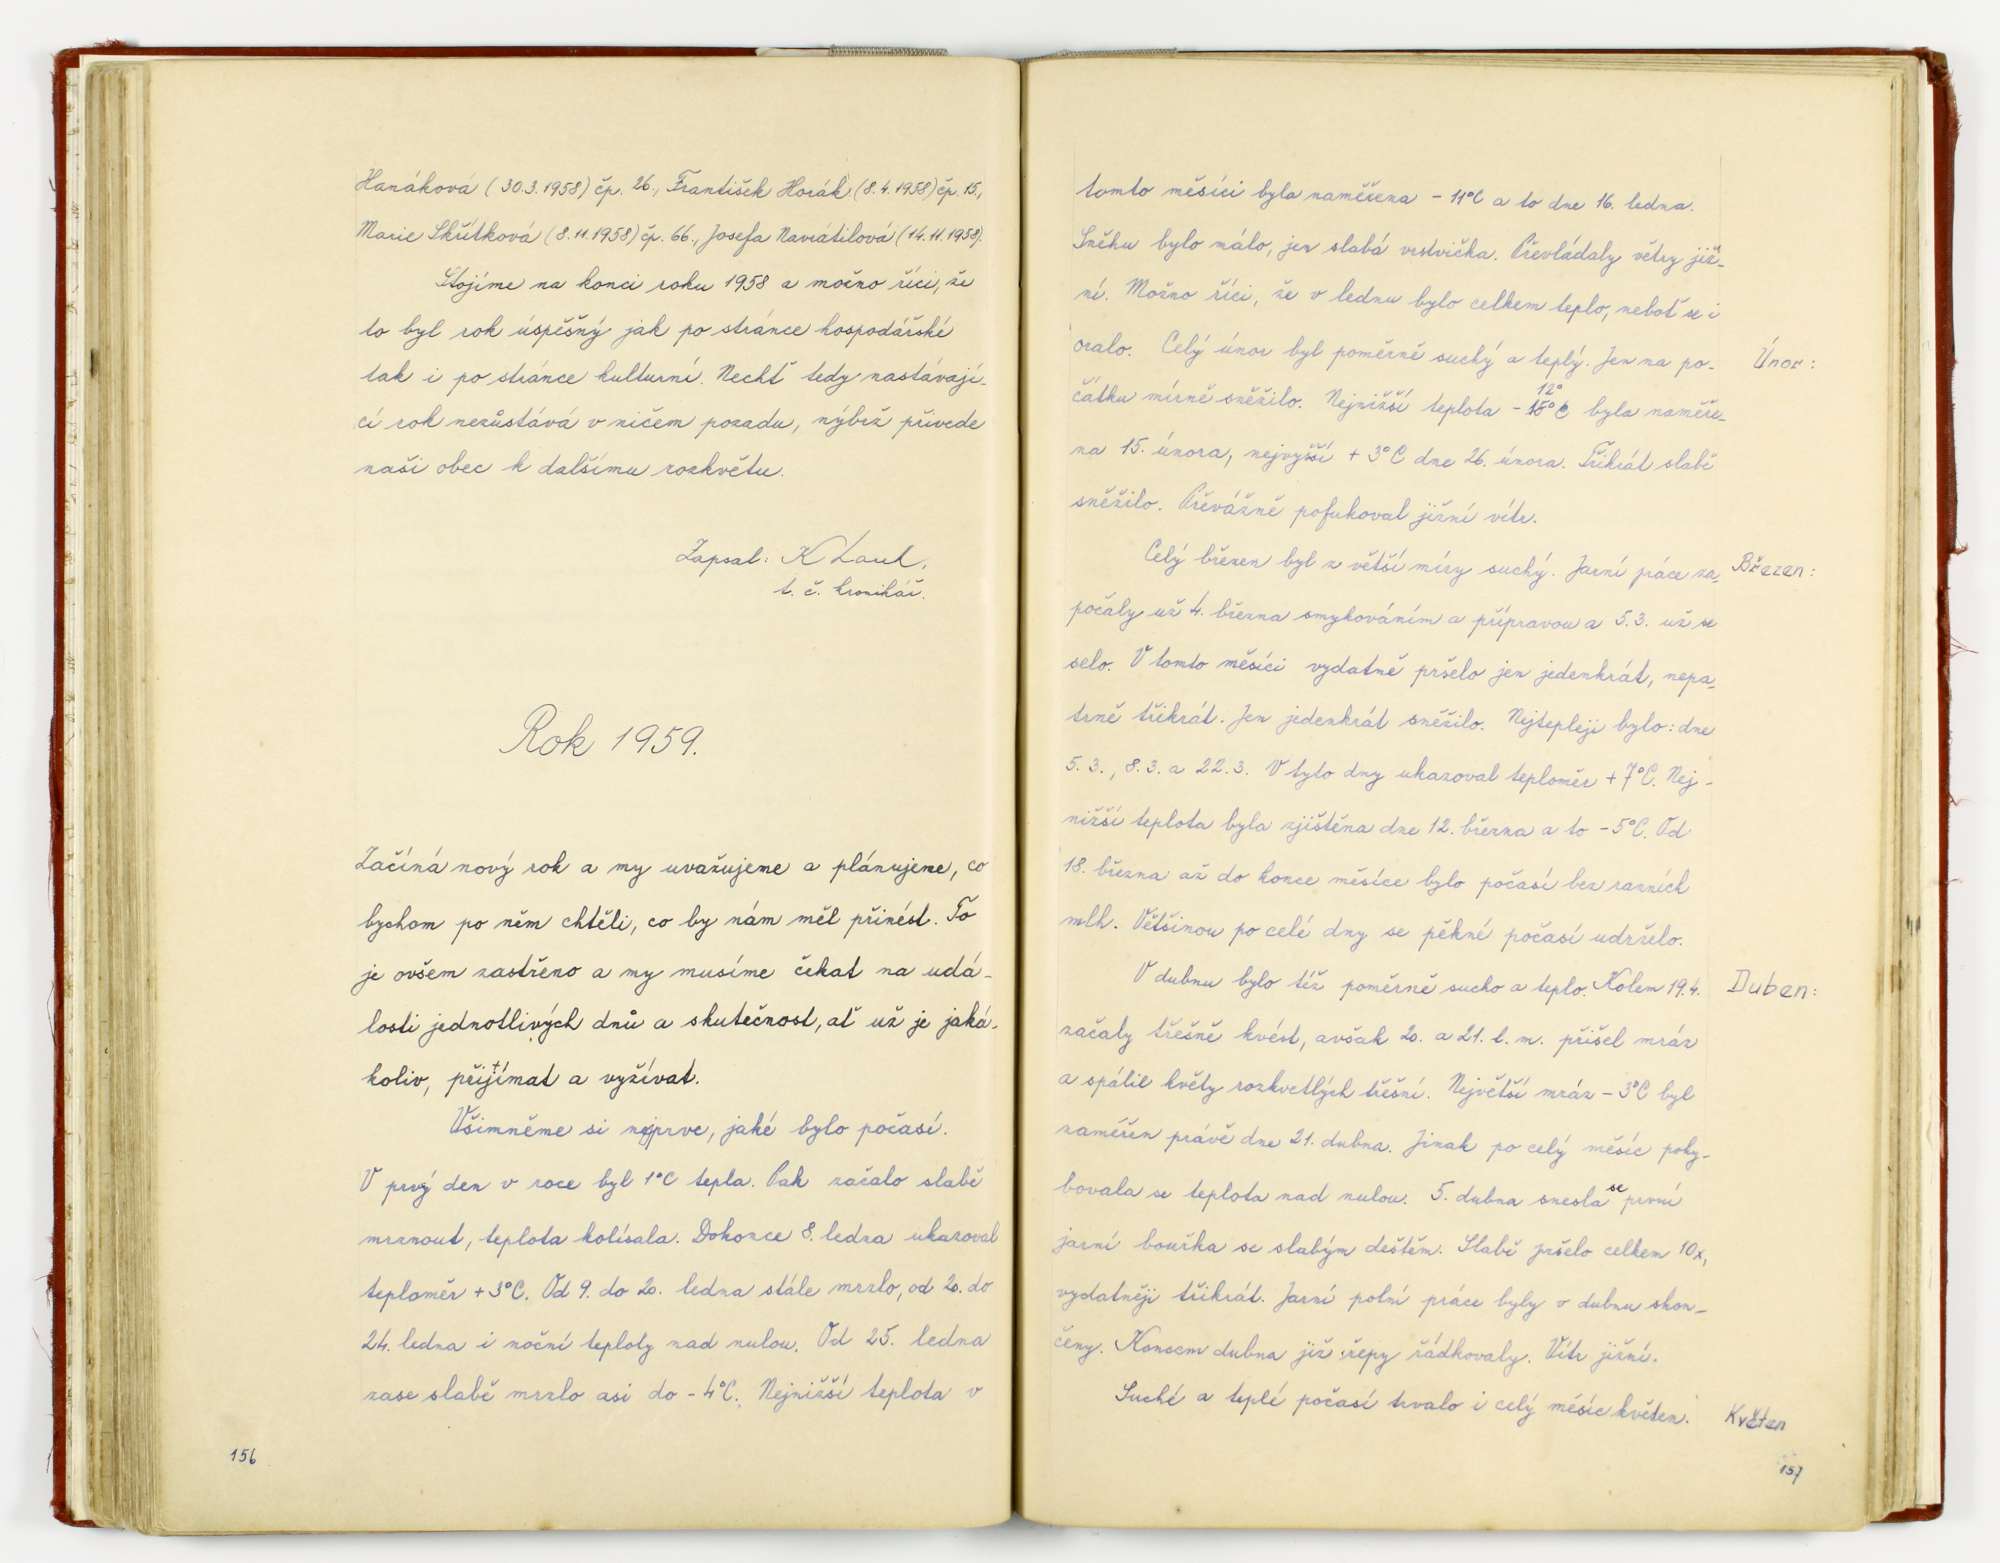 Hanáková (30.3.1958) čp. 26., František Horák (8.4.1958) čp. 15.,
Marie Skřítková (8.11.1958) čp. 66., Josefa Navrátilová (14.11.1958).
Stojíme na konci roku 1958 a možno říci, že
to byl rok úspěšný jak po stránce hospodářské
tak i po stránce kulturní. Nechť tedy nastávají-
cí rok nezůstává v ničem pozadu, nýbrž přivede
naši obec k dalšímu rozkvětu.
Zapsal: K
t. č. kronikář.
Rok 1959.
Začíná nový rok a my uvažujeme a plánujeme, co
bychom po něm chtěli, co by nám měl přinést. To
je ovšem zastřeno a my musíme čekat na udá-
losti jednotlivých dnů a skutečnost, ať už je jaká-
koliv, přijímat a vyžívat.
Všimněme si nejprve, jaké bylo počasí.
V prvý den v roce byl 1°C tepla. Pak začalo slabě
mrznout, teplota kolísala. Dokonce 8. ledna ukazoval
teploměr +3°C. Od 9. do 20. ledna stále mrzlo, od 20. do
24. ledna i noční teploty nad nulou. Od 25. ledna
zase slabě mrzlo asi do -4°C. Nejnižší teplota v
156
tomto měsíci byla naměřena -11°C a to dne 16. ledna.
Sněhu bylo málo, jen slabá vrstvička. Převládaly větry již-
ní. Možno říci, že v lednu bylo celkem teplo, neboť se i
oralo. Celý únor byl poměrně suchý a teplý. Jen na po-
Únor:
čátku mírně sněžilo. Nejnižší teplota -12° C byla naměře-
na 15. února, nejvyšší +3°C dne 26. února. Třikrát slabě
sněžilo. Převážně pofukoval jižní vítr.
Celý březen byl z větší míry suchý. Jarní práce za-
Březen:
počaly už 4. března smykováním a přípravou a 5.3. už se
selo. V tomto měsíci vydatně pršelo jen jedenkrát, nepa-
trně třikrát. Jen jedenkrát sněžilo. Nejtepleji bylo: dne
5.3., 8.3. a 22.3. V tyto dny ukazoval teploměr +7°C. Nej-
nižší teplota byla zjištěna dne 12. března a to -5°C. Od
18. března až do konce měsíce bylo počasí bez ranních
mlh. Většinou po celé dny se pěkné počasí udrželo.
V dubnu bylo též poměrně sucho a teplo. Kolem 19.4.
Duben:
začaly třešně kvést, avšak 20. a 21. t. m. přišel mráz
a spálil květy rozkvetlých třešní. Největší mráz -3°C byl
naměřen právě dne 21. dubna. Jinak po celý měsíc pohy-
bovala se teplota nad nulou. 5. dubna snesla se první
jarní bouřka se slabým deštěm. Slabě pršelo celkem 10x,
vydatněji třikrát. Jarní polní práce byly v dubnu skon-
čeny. Koncem dubna již řepy řádkovaly. Vítr jižní.
Suché a teplé počasí trvalo i celý měsíc květen.
Květen
157